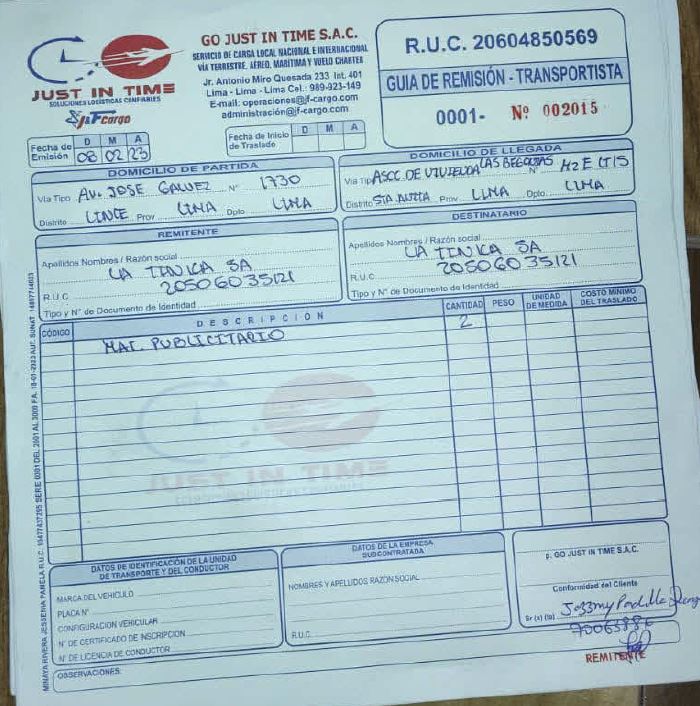 JUST IN TIME
SOLUCIONES LOGÍSTICAS CONFIABLES
J&F cargo
GO JUST IN TIME S.A.C.
SERVICIO DE CARGA LOCAL NACIONAL E INTERNACIONAL
VÍA TERRESTRE, AÉREO, MARÍTIMA Y VUELO CHARTER
Jr. Antonio Miro Quesada 233 Int. 401
Lima - Lima - Lima Cel.: 989-923-149
E-mail: operaciones@jf-cargo.com
administración@jf-cargo.com
R.U.C. 20604850569
GUIA DE REMISIÓN - TRANSPORTISTA
0001- Nº 002015
Fecha de Emisión D M A
08 02 23
Fecha de Inicio de Traslado D M A
DOMICILIO DE PARTIDA
Vía Tipo AV. JOSE GALVEZ Nº 1730
Distrito LINCE Prov LIMA Dpto LIMA
DOMICILIO DE LLEGADA
Vía Tipo ASCC DE VIVIENDA LAS BEGONIAS Nº MZ E LT 15
Distrito STA ANITA Prov LIMA Dpto LIMA
REMITENTE
Apellidos Nombres / Razón social
LA TINKA SA
R.U.C. 20506035121
Tipo y N° de Documento de Identidad
DESTINATARIO
Apellidos Nombres / Razón social
LA TINKA SA
R.U.C. 20506035121
Tipo y N° de Documento de Identidad
CÓDIGO DESCRIPCIÓN CANTIDAD PESO UNIDAD DE MEDIDA COSTO MÍNIMO DEL TRASLADO
MAT. PUBLICITARIO 2
JUST IN TIME
DATOS DE IDENTIFICACIÓN DE LA UNIDAD
DE TRANSPORTE Y DEL CONDUCTOR
MARCA DEL VEHÍCULO
PLACA N°
CONFIGURACIÓN VEHICULAR
N° DE CERTIFICADO DE INSCRIPCIÓN
N° DE LICENCIA DE CONDUCTOR
DATOS DE LA EMPRESA
SUBCONTRATADA
NOMBRES Y APELLIDOS RAZÓN SOCIAL
R.U.C.
p. GO JUST IN TIME S.A.C.
Conformidad del Cliente
Sr (a) (ta) Jazzmy Padilla
REMITENTE
OBSERVACIONES: